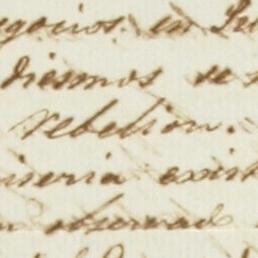 egocios. en Se
diesmos se
rebelion.
iseria exist
n observado